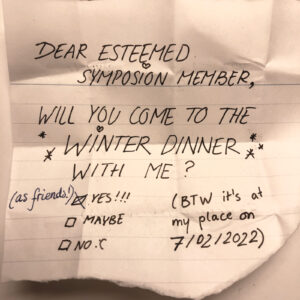 DEAR ESTEEMED
SYMPOSION MEMBER,
WILL YOU COME TO THE
* WINTER DINNER *
WITH ME?
(as friends!) ☑ YES!!!
☐ MAYBE
☐ NO :(
(BTW it's at
my place on
7/02/2022)